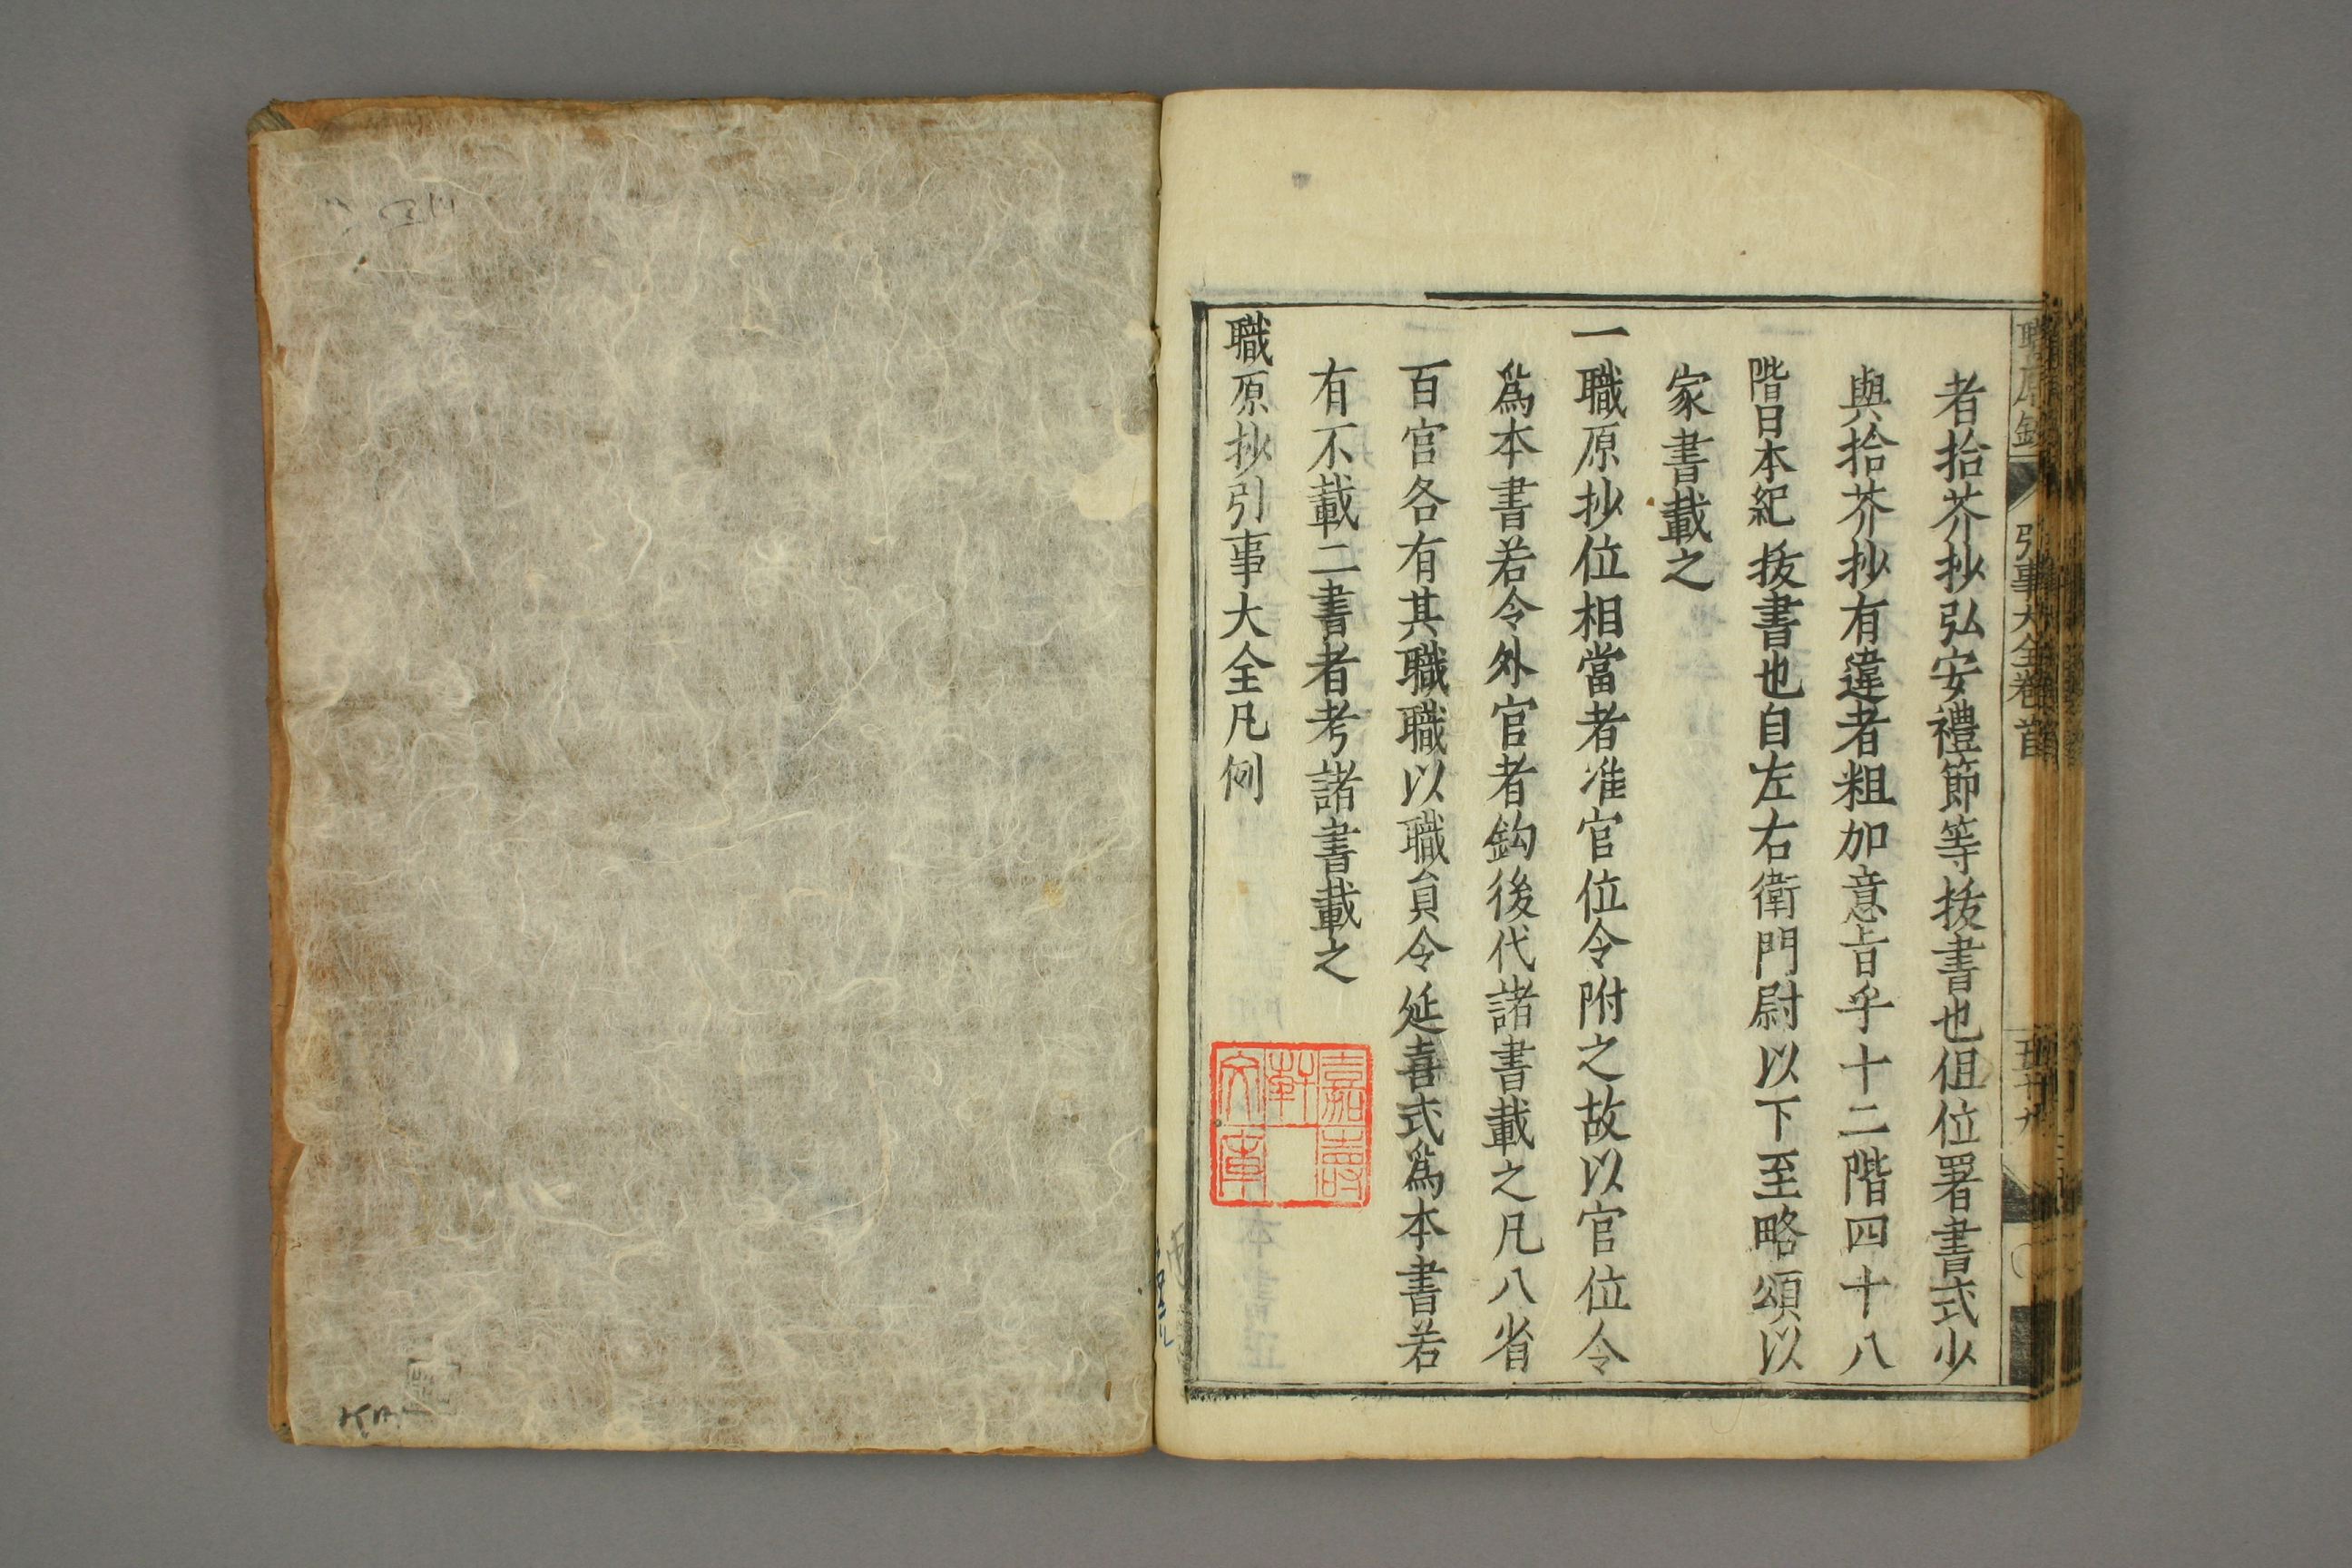 者拾芥抄弘安禮節等拔書也但位署書式少
與拾芥抄有違者粗加意㫖乎十二階四十八
階日本紀拔書也自左右衛門尉以下至略頌以
家書載之
一職原抄位相當者准官位令附之故以官位令
爲本書若令外官者鈎後代諸書載之凡八省
百官各有其職職以職員令延喜式爲本書若
有不載二書者考諸書載之
職原抄引事大全凡例
嘉壽
軒
文庫
職原鈔
引事大全卷首
五十九